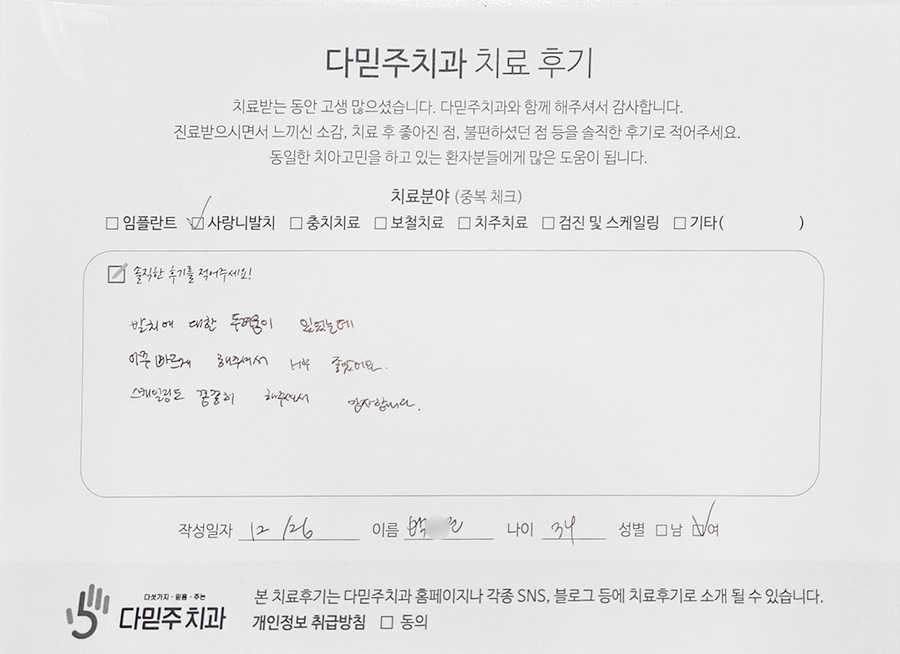 다믿주치과 치료 후기
치료받는 동안 고생 많으셨습니다. 다믿주치과와 함께 해주셔서 감사합니다.
진료받으시면서 느끼신 소감, 치료 후 좋아진 점, 불편하셨던 점 등을 솔직한 후기로 적어주세요.
동일한 치아고민을 하고 있는 환자분들에게 많은 도움이 됩니다.
치료분야 (중복 체크)
□ 임플란트 ☑ 사랑니발치 □ 충치치료 □ 보철치료 □ 치주치료 □ 검진 및 스케일링 □ 기타( )
솔직한 후기를 적어주세요!
발치에 대한 두려움이 있었는데
아주 빠르게 해주셔서 너무 좋았어요.
스케일링도 꼼꼼히 해주셔서 감사합니다.
작성일자 12/26 이름 백 나이 34 성별 □남 ☑여
다섯가지·믿음·주는
다믿주치과
본 치료후기는 다믿주치과 홈페이지나 각종 SNS, 블로그 등에 치료후기로 소개 될 수 있습니다.
개인정보 취급방침 □ 동의